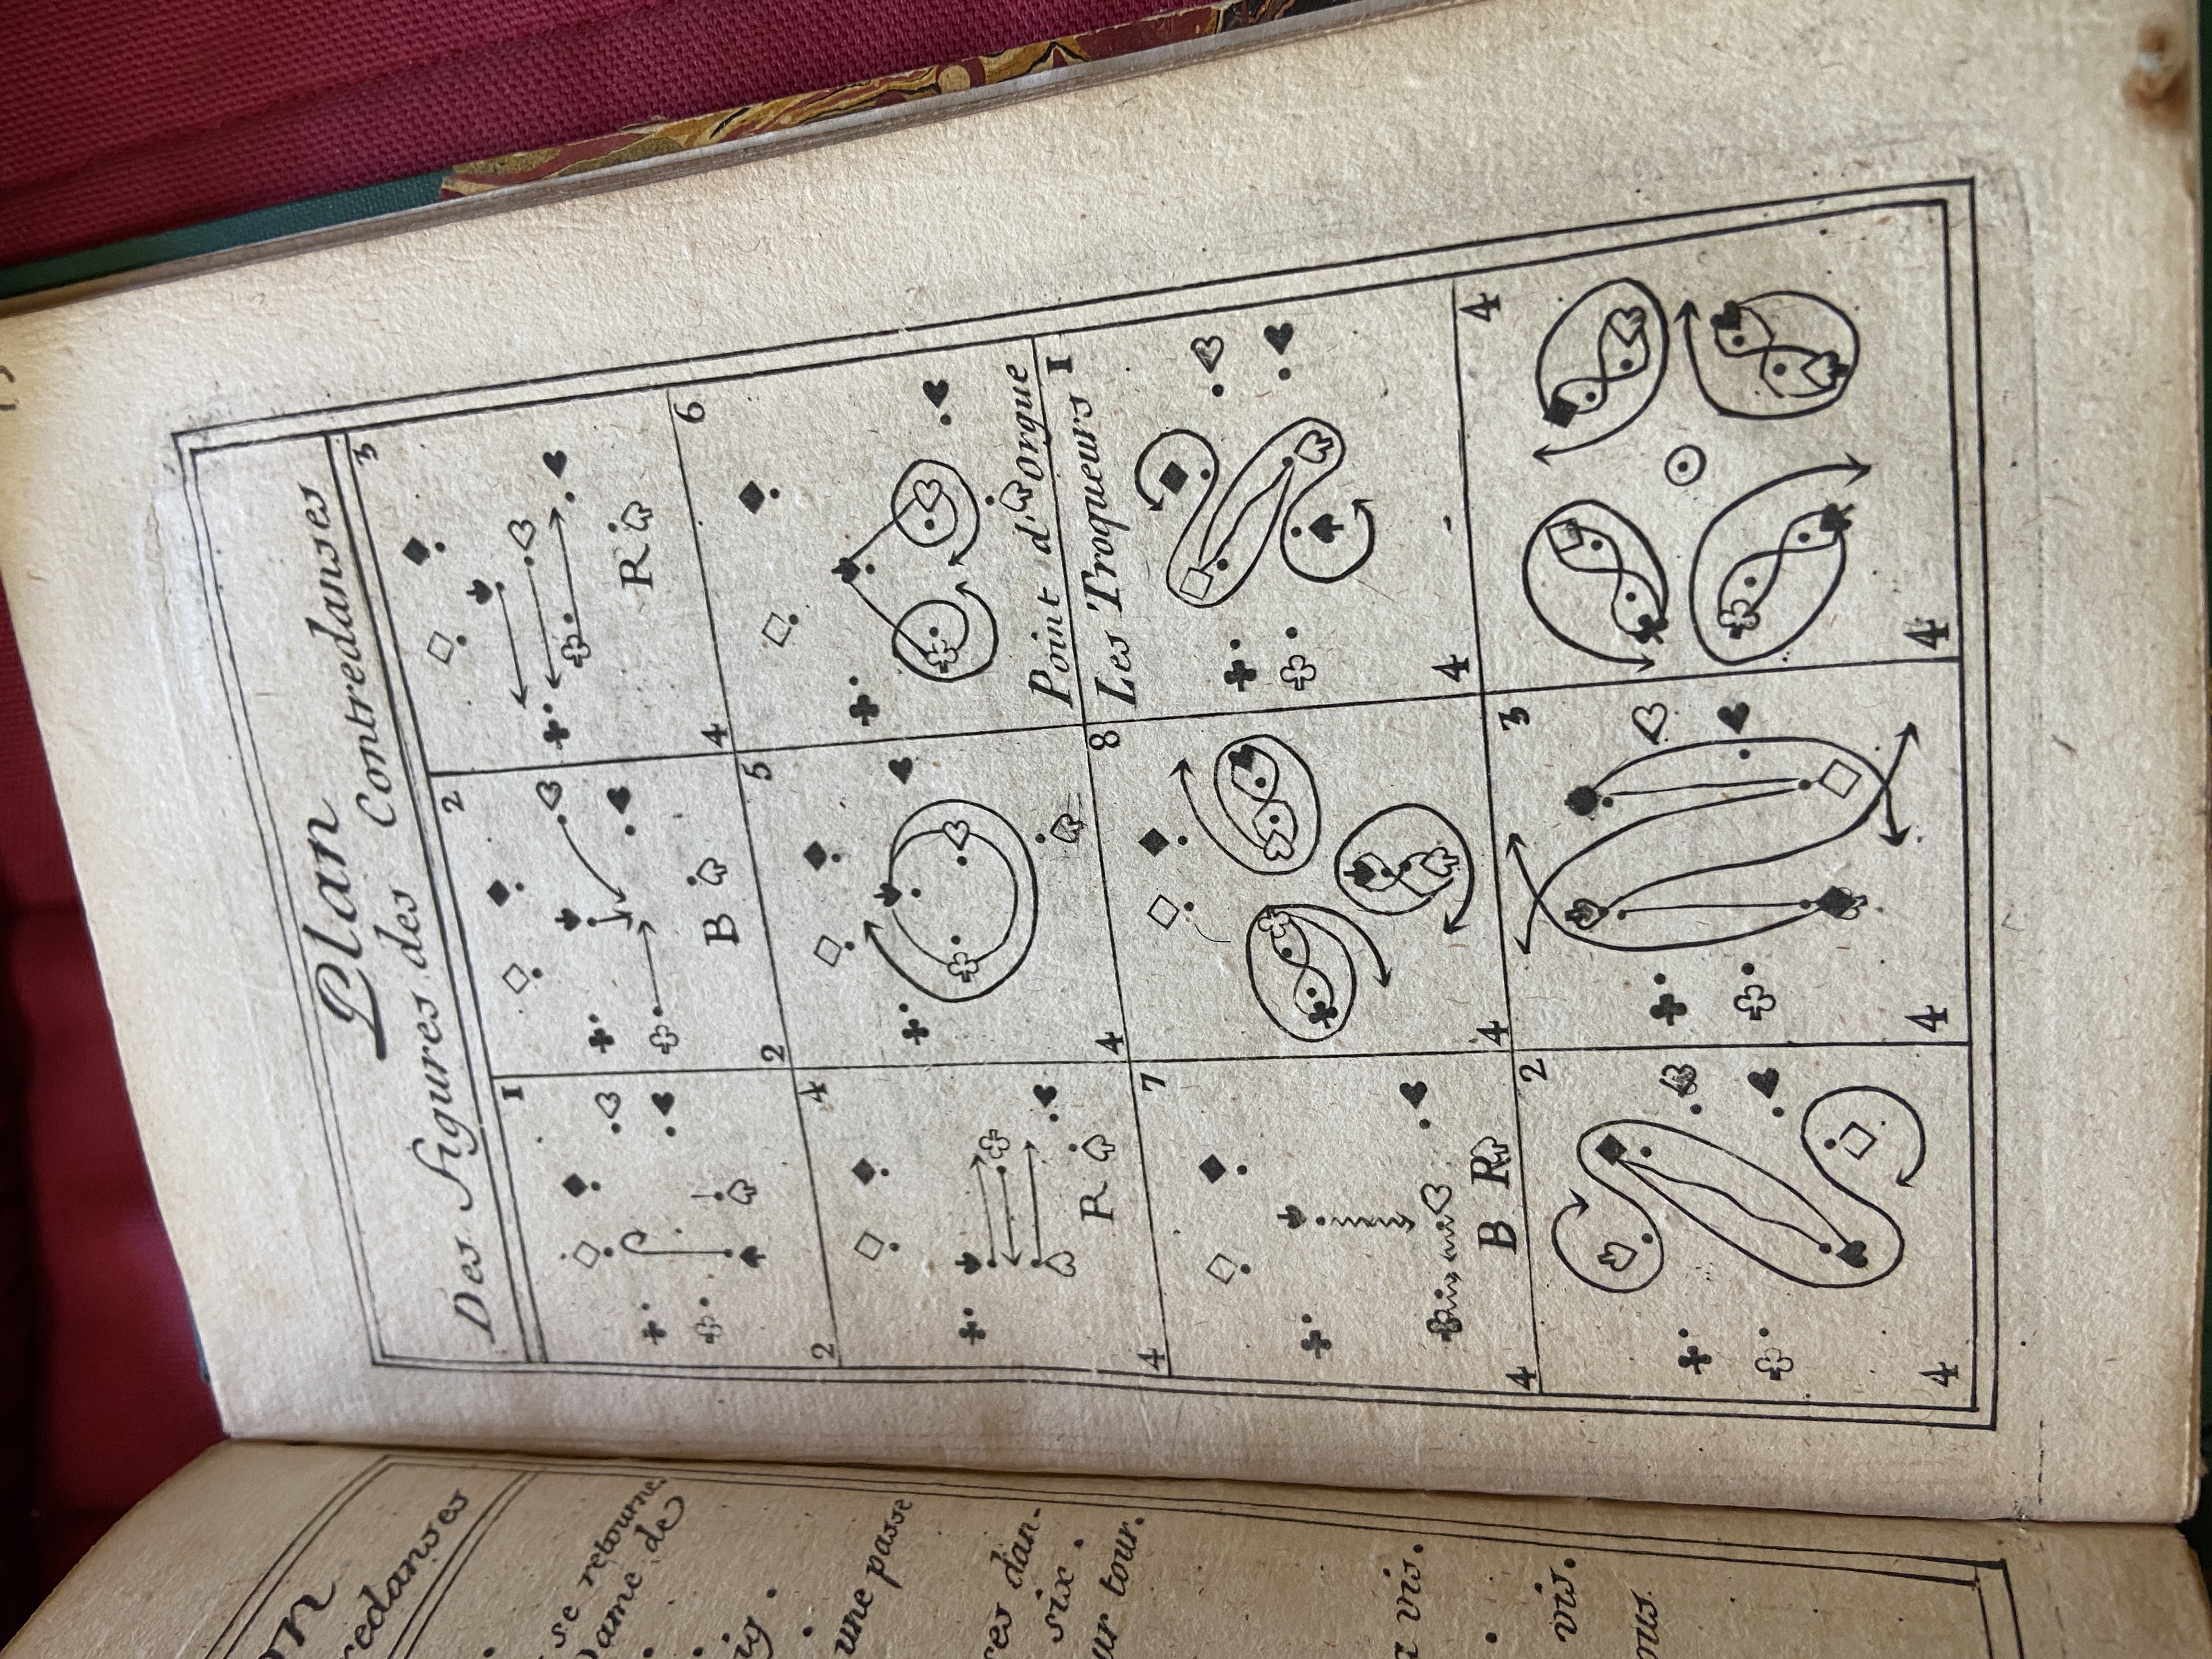 se retourne
Dame de
une passe
six.
tour.
vis.
vis.
Plan
Des Figures des Contredanses
1 2 3
B R
2 2 4
4 5 6
R
Point d'Orgue
4 4
7 8 Les Troqueurs 1
B R
4 4 4
2 3 4
4 4 4